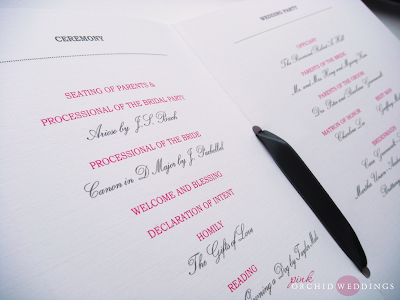 CEREMONY
SEATING OF PARENTS &
PROCESSIONAL OF THE BRIDAL PARTY
Arioso by J.S. Bach
PROCESSIONAL OF THE BRIDE
Canon in D Major by J. Pachelbel
WELCOME AND BLESSING
DECLARATION OF INTENT
HOMILY
The Gifts of Love
READING
Owning a Dog by Taylor Mali
WEDDING PARTY
OFFICIANT
The Reverend Robert A. Hill
PARENTS OF THE BRIDE
Mr. and Mrs. Hong and Myung Kim
PARENTS OF THE GROOM
MATRON OF HONOR
BEST MAN
BRIDESMAIDS
pink
ORCHID WEDDINGS